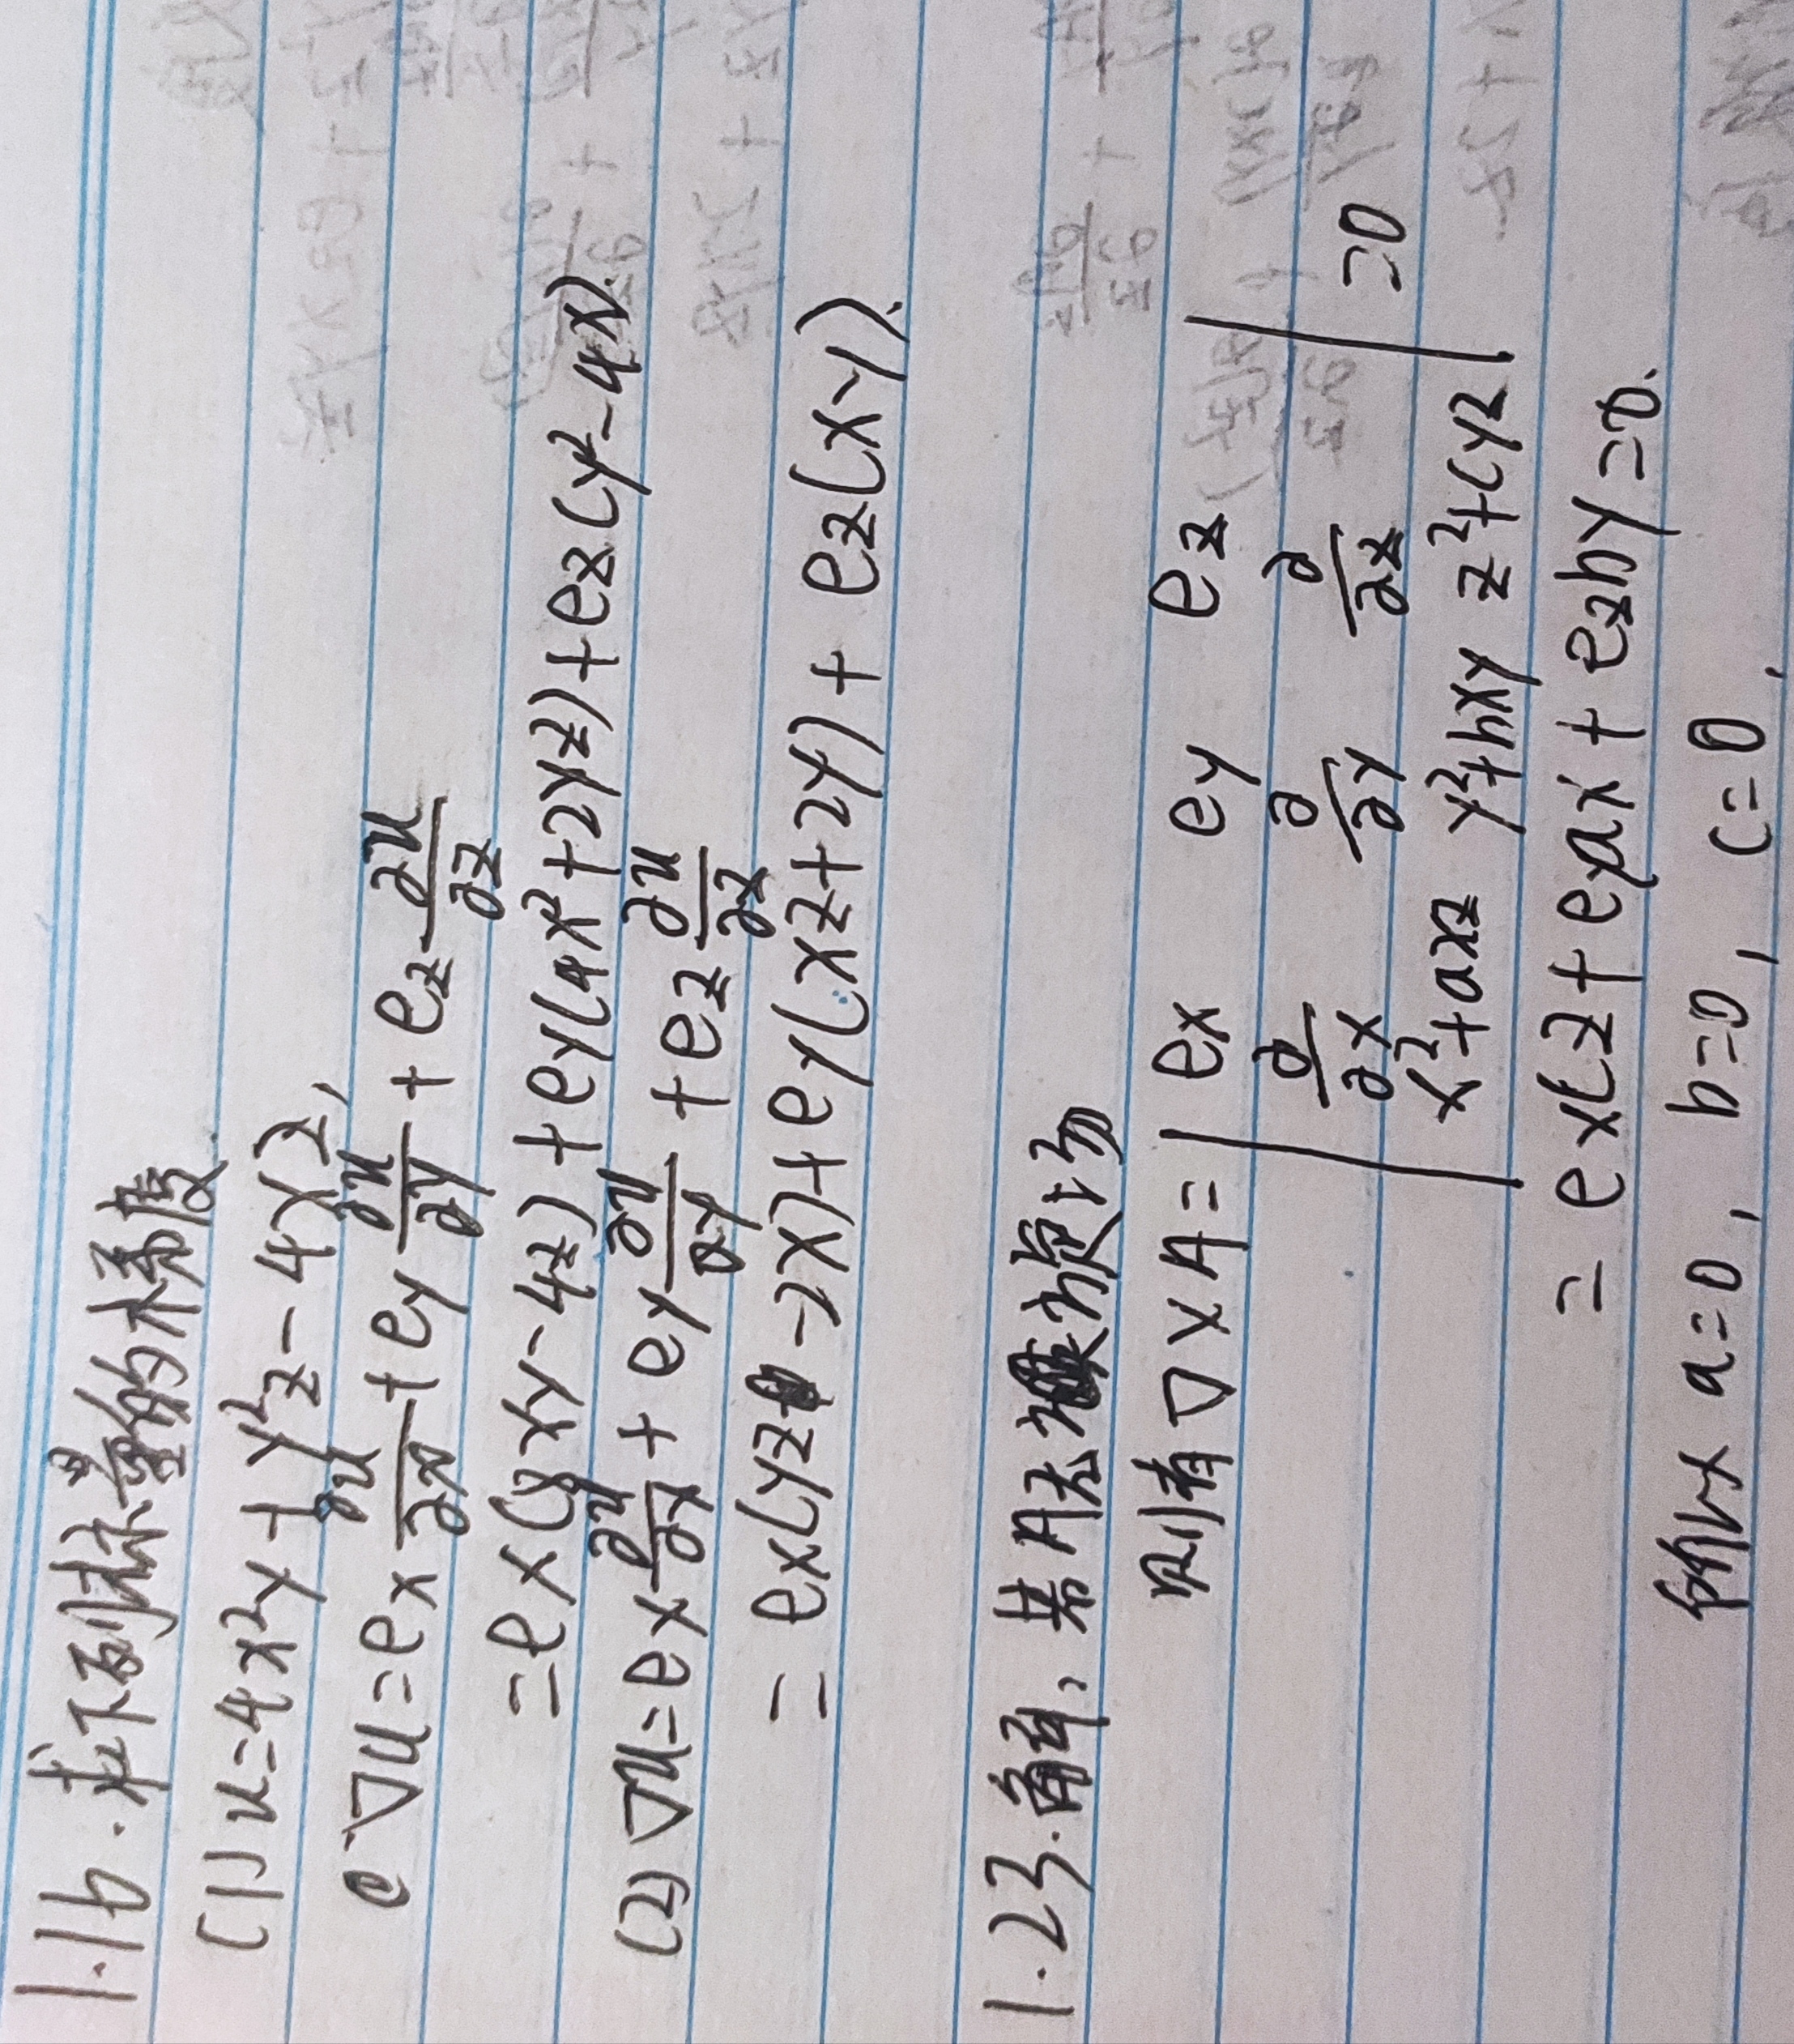 1.16.求下列标量的梯度
(1) u=4x²y+y²z-4xz,
∇u=ex ∂u/∂x + ey ∂u/∂y + ez ∂u/∂z
=ex(8xy-4z)+ey(4x²+2yz)+ez(y²-4x).
(2) ∇u=ex ∂u/∂x + ey ∂u/∂y + ez ∂u/∂z
= ex(yz-2x)+ey(xz+2y)+ez(xy).
1.23.解，若A无旋场
则有 ∇×A= | ex ey ez |
∂/∂x ∂/∂y ∂/∂z =0
x²+axz y²+bxy z²+cyz
= excz+eyax+ezby=0.
所以 a=0, b=0, c=0.